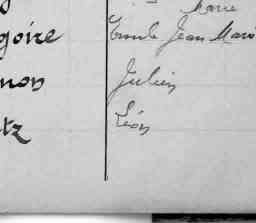 Marie
goire Jean Marie
non Julien
tz Léon